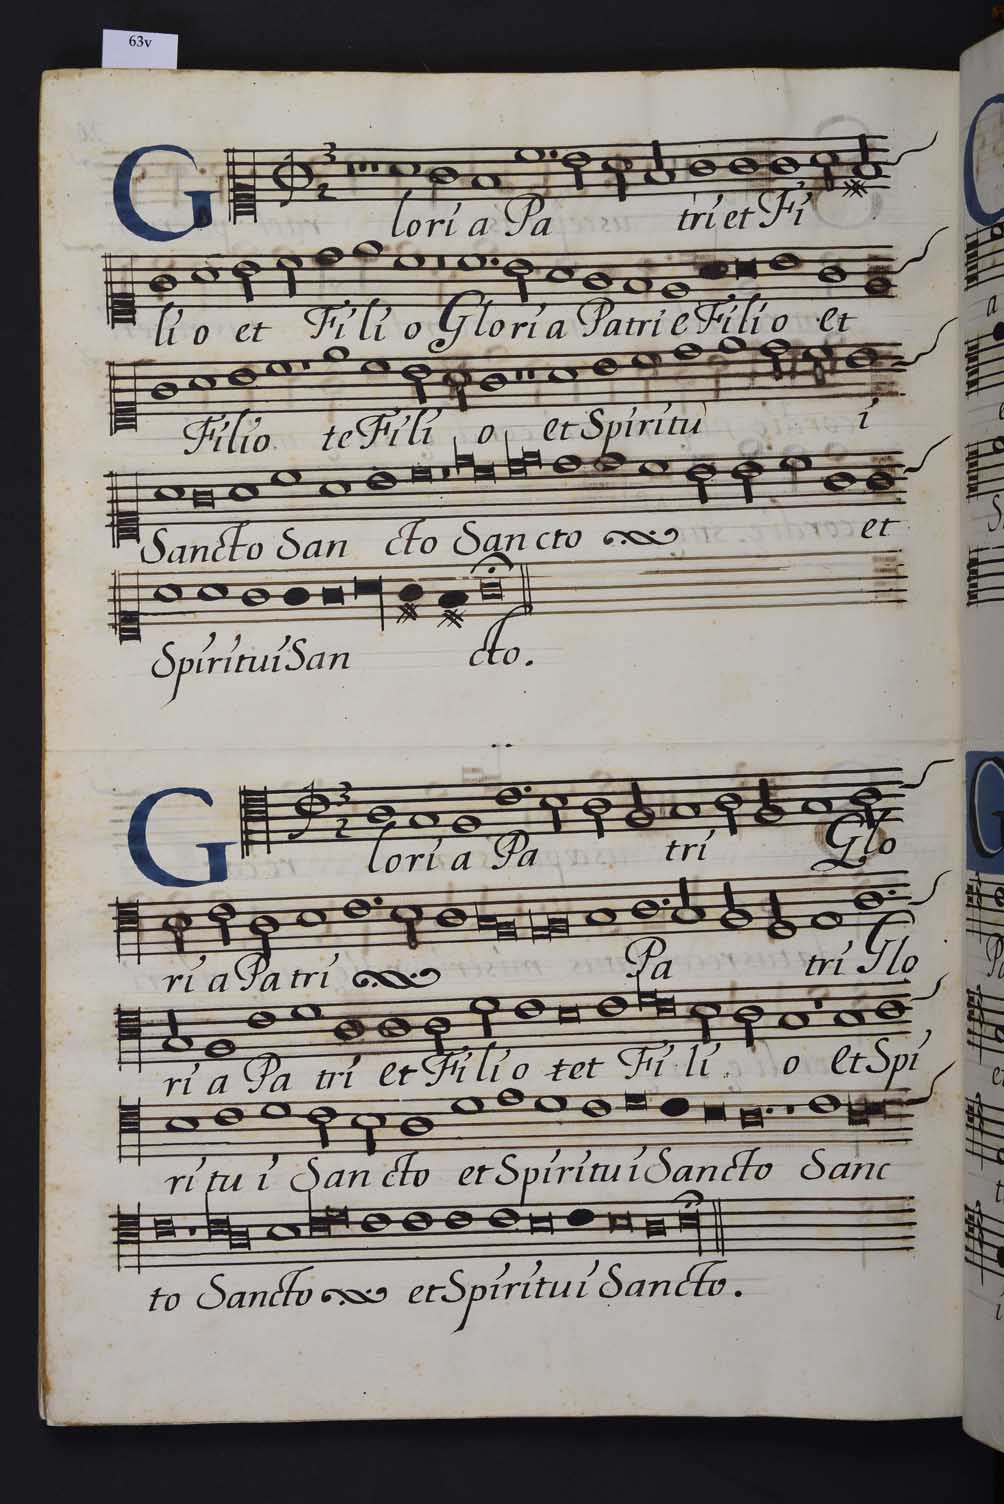 63v
Gloria Pa tri et Fi
lio et Filio Gloria Patri e Filio et
Filio te Fili o et Spiritu i
Sancto San cto Sancto et
Spiritui San cto.
Gloria Pa tri Glo
ria Patri Pa tri Glo
ria Pa tri et Filio tet Fili o et Spi
ritui Sancto et Spiritui Sancto Sanc
to Sancto et Spiritui Sancto.